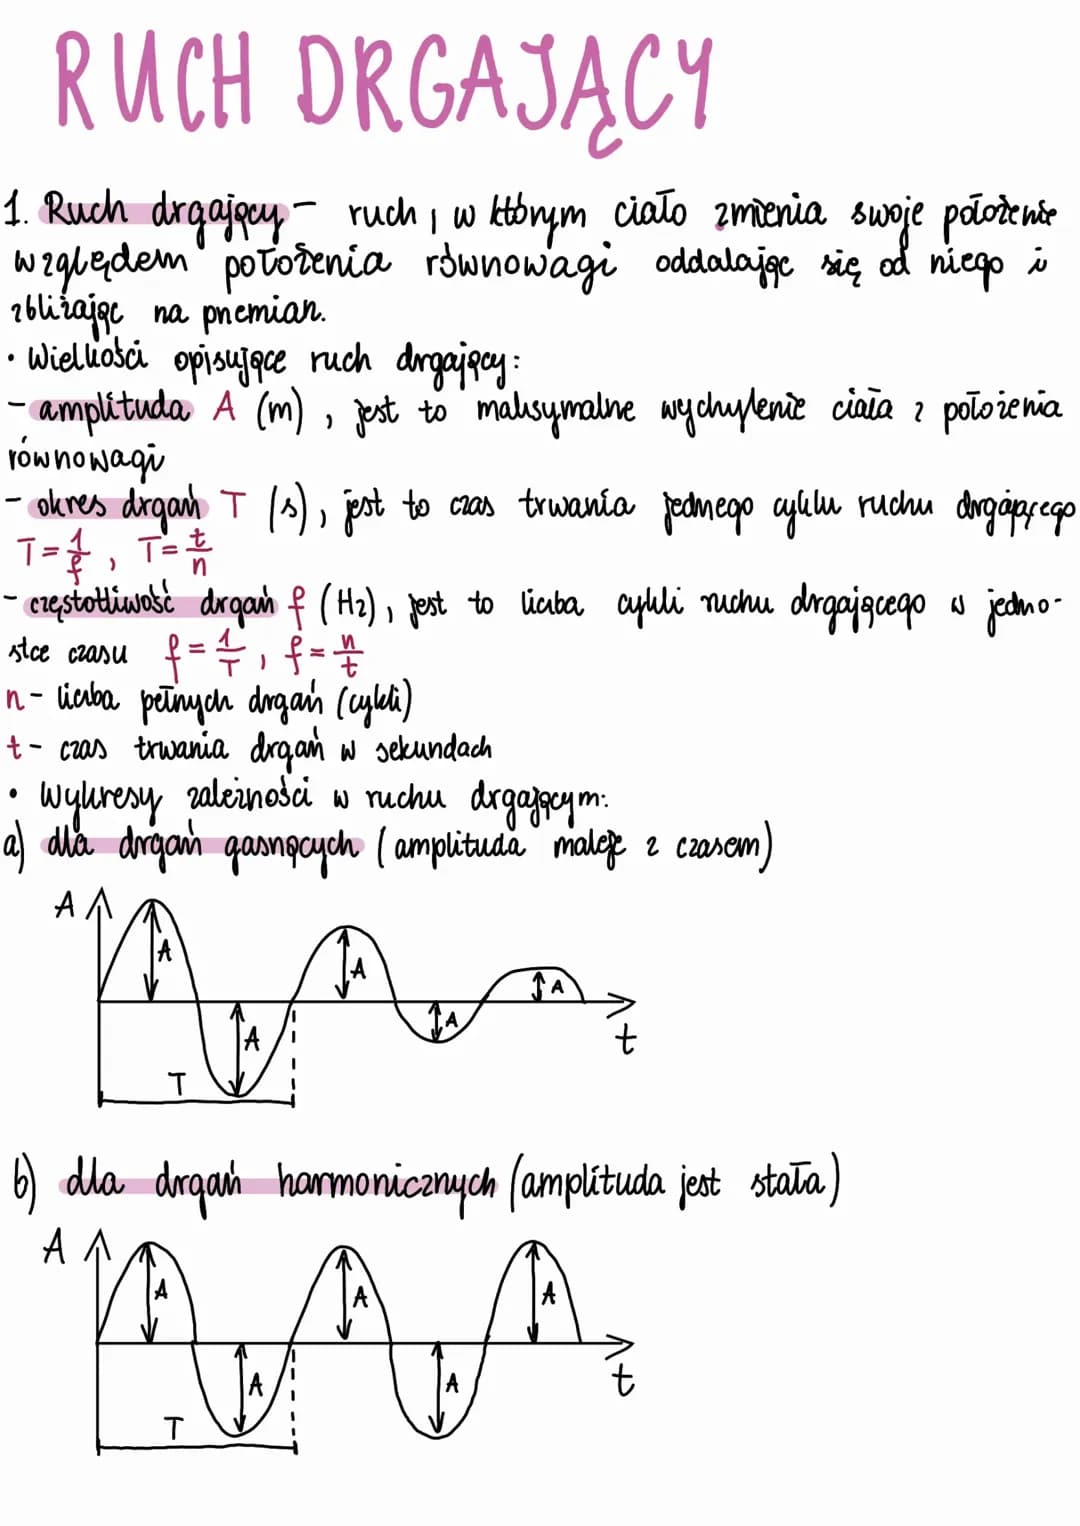 RUCH DRGAJĄCY
1. Ruch drgający - ruch, w którym ciało zmienia swoje położenie
względem położenia równowagi oddalając się od niego i
zbliżając na przemian.
• Wielkości opisujące ruch drgający:
- amplituda A (m), jest to maksymalne wychylenie ciała z położenia
równowagi
- okres drgań T (s), jest to czas trwania jednego cyklu ruchu drgającego
T = 1/f, T = t/n
- częstotliwość drgań f (Hz), jest to liczba cykli ruchu drgającego w jedno-
stce czasu f = 1/T, f = n/t
n - liczba pełnych drgań (cykli)
t - czas trwania drgań w sekundach
• Wykresy zależności w ruchu drgającym:
a) dla drgań gasnących (amplituda maleje z czasem)
A
A A A A A
t
T
b) dla drgań harmonicznych (amplituda jest stała)
A
A A A A A
t
T